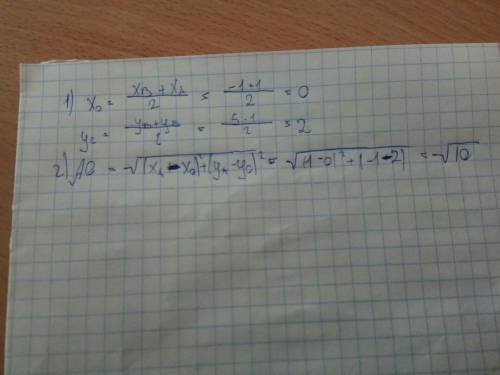 1) x₀ = (x_B + x_A)/2 = (-1+1)/2 = 0
y_c = (y_A + y_B)/2 = (5-1)/2 = 2
2) AO = √((x_A - x_0)² + (y_A - y_0)²) = √((1-0)² + (-1-2)) = √10